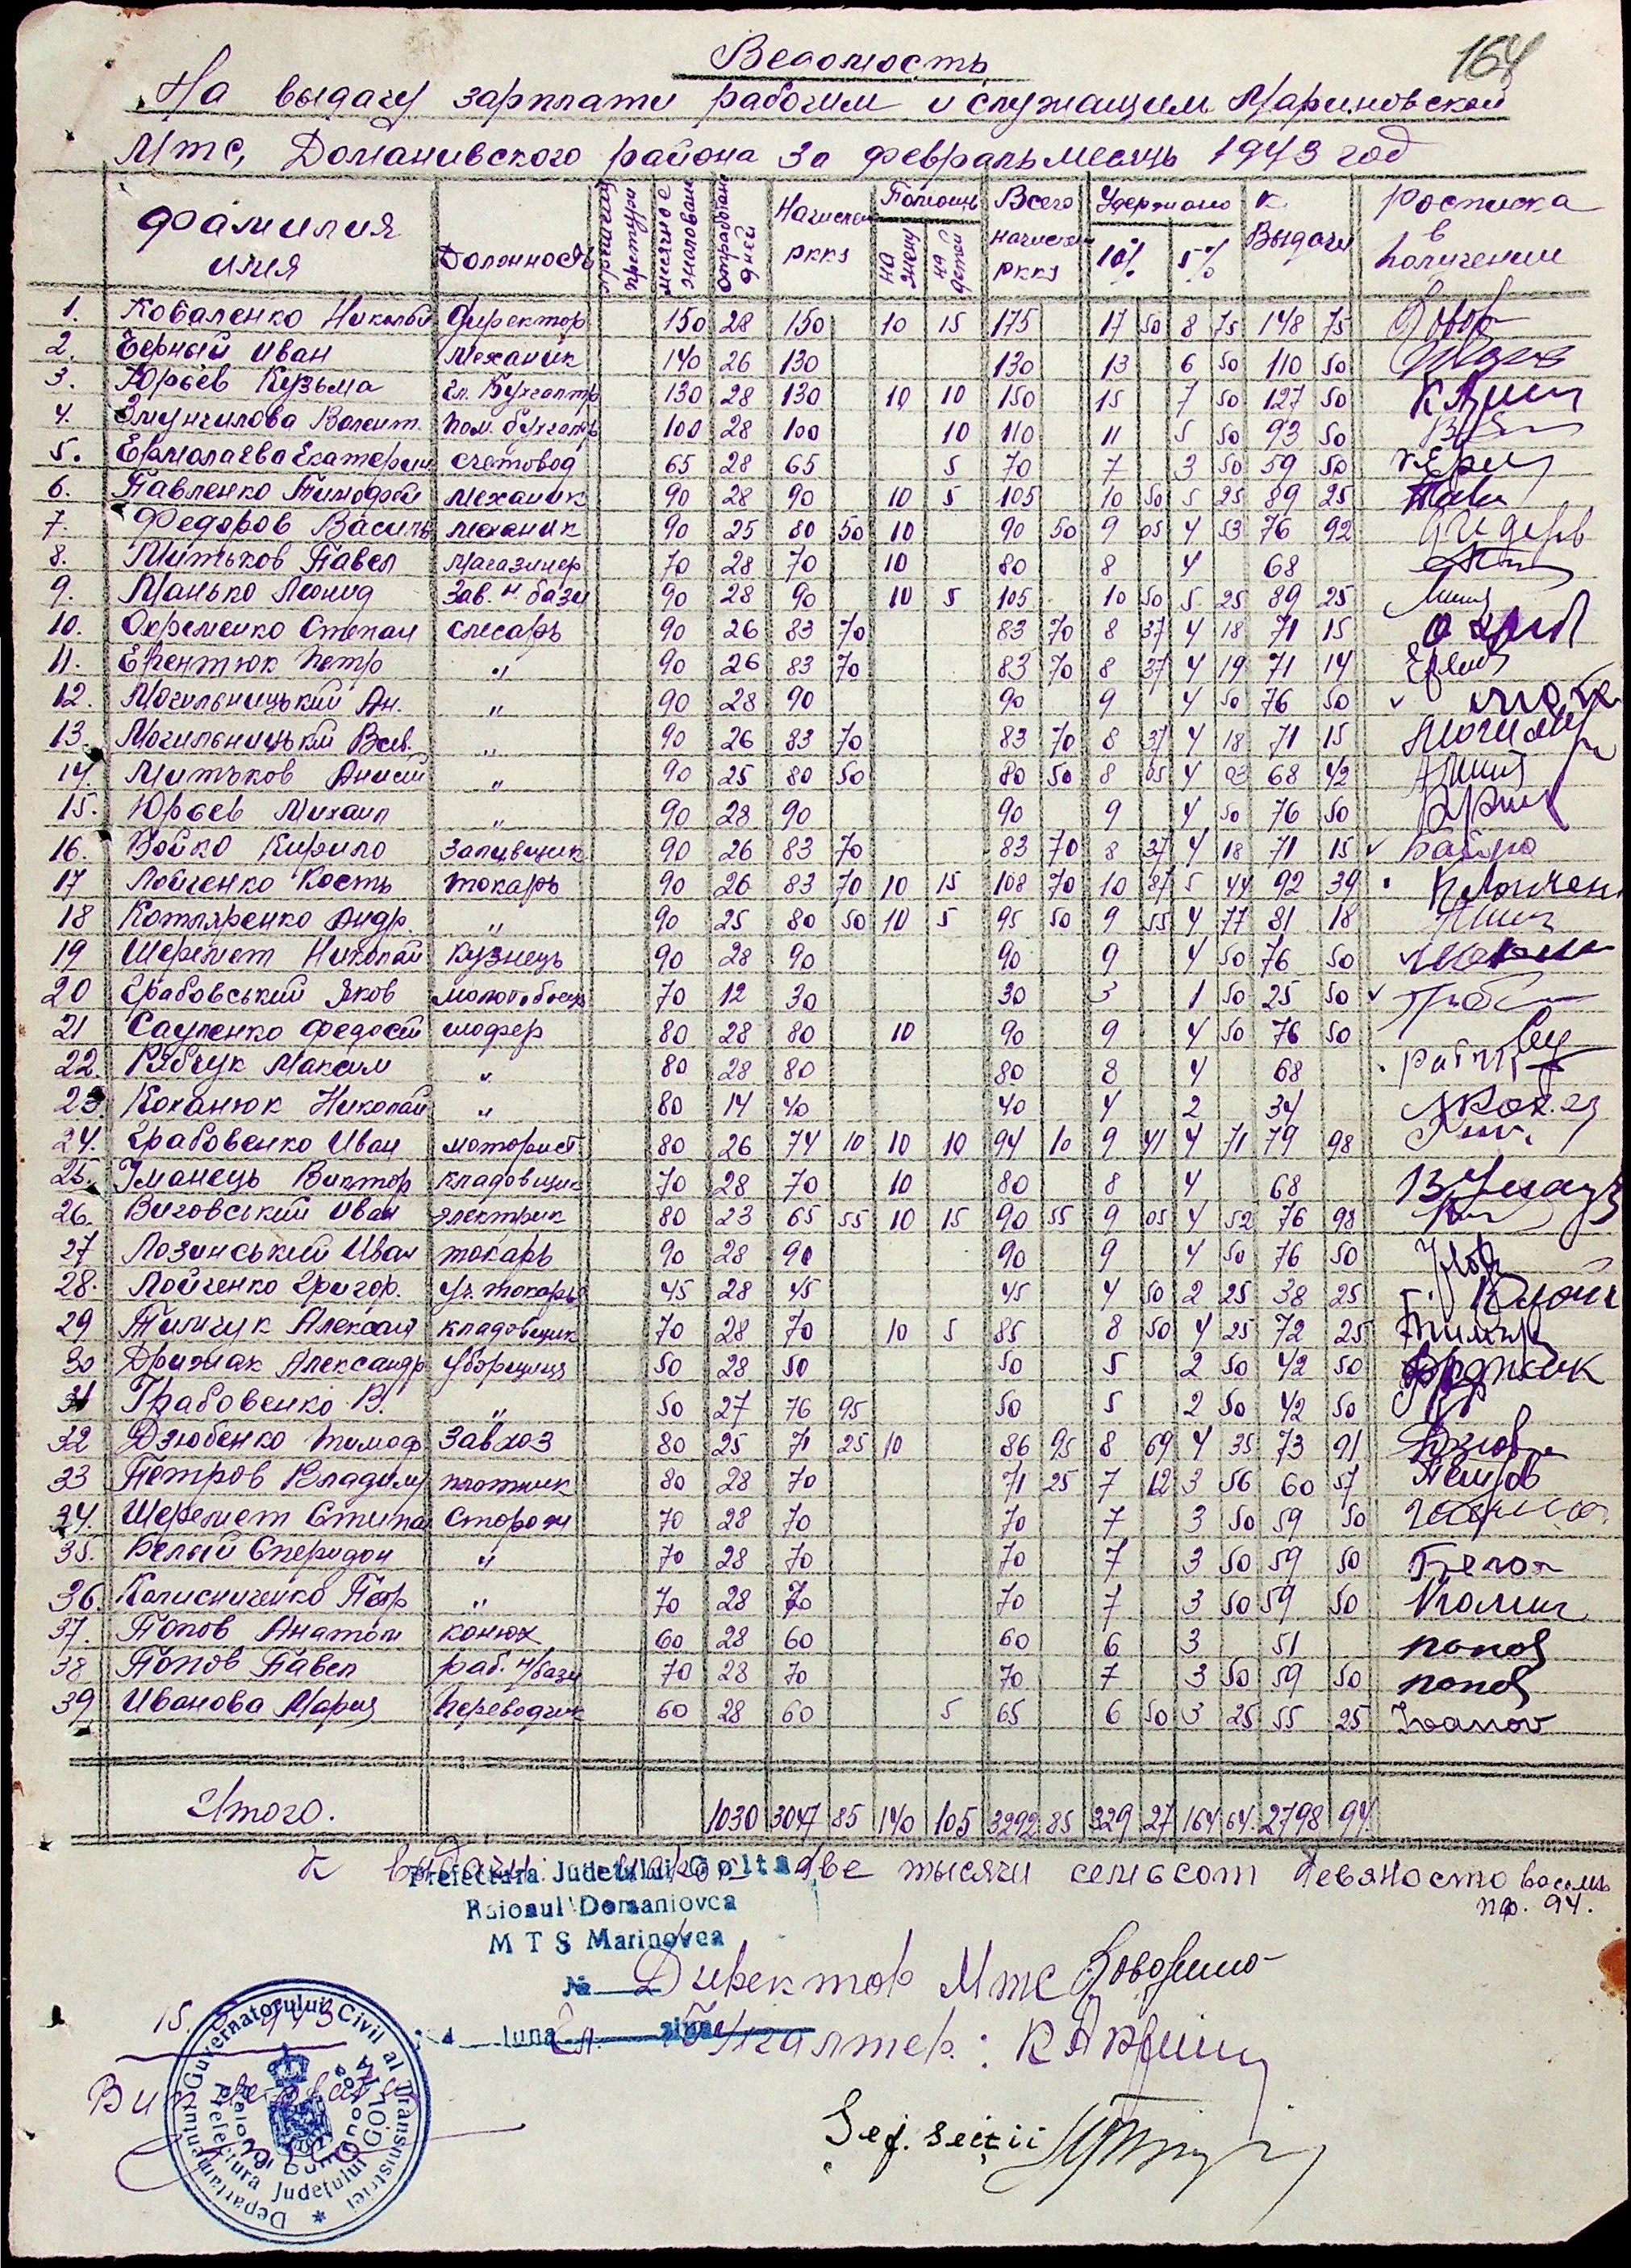 164
Ведомость
На выдачу зарплати рабочим и служащим Мариновской
Мтс, Доманивского района за февраль месяць 1943 год
фамилия имя Должность месячное отработано дней Начислен рккs Помощь на жену на детей Всего начислен рккs Удержано 10% 5% к Выдачи Росписка в получении
1. Коваленко Николай Директор 150 28 150 10 15 175 17 50 8 75 148 75
2. Черный Иван Механик 140 26 130 130 13 6 50 110 50
3. Юрьев Кузьма гл. Бухгалтр 130 28 130 10 10 150 15 7 50 127 50
4. Валент. пом. бухгалтр 100 28 100 10 110 11 5 50 93 50
5. Ермолаева Екатерин счетовод 65 28 65 5 70 7 3 50 59 50
6. Павленко Тимофей механик 90 28 90 10 5 105 10 50 5 25 89 25
7. Федоров Василь механик 90 25 80 50 10 90 50 9 05 4 53 76 92
8. Митьков Павел Магазинер 70 28 70 10 80 8 4 68
9. Манько Леонид Зав. н базы 90 28 90 10 5 105 10 50 5 25 89 25
10. Охременко Степан слесарь 90 26 83 70 83 70 8 37 4 18 71 15
11. Петр " 90 26 83 70 83 70 8 37 4 19 71 14
12. Могильницький Ан. " 90 28 90 90 9 4 50 76 50
13. Могильницький Вав. " 90 26 83 70 83 70 8 37 4 18 71 15
14. Митьков Анисий " 90 25 80 50 80 50 8 05 4 03 68 42
15. Юрьев Михаил " 90 28 90 90 9 4 50 76 50
16. Бойко Кирило Заливщик 90 26 83 70 83 70 8 37 4 18 71 15
17 Лойченко Кость токарь 90 26 83 70 10 15 108 70 10 87 5 44 92 39
18 Котляренко Андр. " 90 25 80 50 10 5 95 50 9 55 4 77 81 18
19 Шеремет Николай Кузнець 90 28 90 90 9 4 50 76 50
20 Грабовський Яков молотобоец 70 12 30 30 3 1 50 25 50
21 Сауленко Федосей шофер 80 28 80 10 90 9 4 50 76 50
22. Рябчук Максим " 80 28 80 80 8 4 68
23. Коханюк Николай " 80 14 40 40 4 2 34
24. Грабовенко Иван моторист 80 26 74 10 10 10 94 10 9 41 4 71 79 98
25. Уманець Виктор кладовщик 70 28 70 10 80 8 4 68
26. Виговський Иван электрик 80 23 65 55 10 15 90 55 9 05 4 52 76 98
27 Лозинський Иван токарь 90 28 90 90 9 4 50 76 50
28. Лойченко Григор. уч. токарь 45 28 45 45 4 50 2 25 38 25
29 Тимчук Алексей кладовщик 70 28 70 10 5 85 8 50 4 25 72 25
30 Дрижак Александр уборщиця 50 28 50 50 5 2 50 42 50
31 Грабовенко В. " 50 27 76 95 50 5 2 50 42 50
32 Дзюбенко Тимоф. Завхоз 80 25 71 25 10 86 95 8 69 4 35 73 91
33 Петров Владим плотник 80 28 70 71 25 7 12 3 56 60 57 Петров
34. Шеремет Степан Сторож 70 28 70 70 7 3 50 59 50
35. Белый Спиридон " 70 28 70 70 7 3 50 59 50
36. Колисниченко Петр " 70 28 70 70 7 3 50 59 50
37. Попов Анатол конюх 60 28 60 60 6 3 51 попов
38 Попов Павел раб. н/базы 70 28 70 70 7 3 50 59 50 попов
39 Иванова Мария Переводчик 60 28 60 5 65 6 50 3 25 55 25 Ivanov
Итого. 1030 3047 85 140 105 3292 85 329 27 164 64 2798 94
К выдачи две тысячи семьсот девяносто восемь
пф. 94.
Prefectura Judetului Golta
Raionul Domaniovca
M T S Marinovca
№
luna
Директор Мтс
Гл. Бухгалтер:
Şef. secţii
Guvernatorului Civil al Transnistriei
Departamentul
Prefectura Judeţului GOLTA